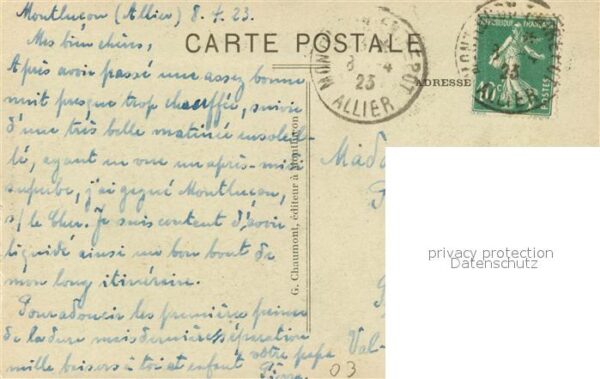 Montluçon (Allier) 8. 4. 23.
Mes bien chères,
Après avoir passé une assez bonne
nuit presque trop chauffée, suivie
d'une très belle matinée ensoleil-
lé, ayant en vue un après-midi
superbe, j'ai gagné Montluçon,
s/ le Cher. Je suis content d'avoir
liquidé ainsi un bon bout de
mon long itinéraire.
Pour adoucir les première peines
de la dure mais dernière séparation
mille baisers à toi et enfant votre papa
Pierre
CARTE POSTALE
ADRESSE
G. Chaumont, éditeur à Montluçon
8 - 4
23
ALLIER
Val-
privacy protection
Datenschutz
03